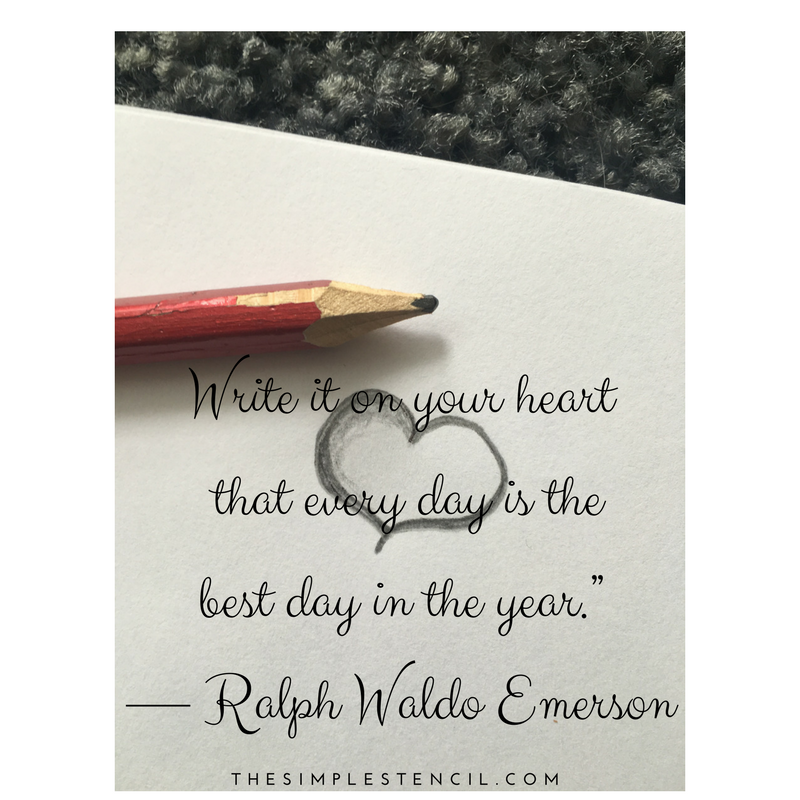 Write it on your heart
that every day is the
best day in the year.”
— Ralph Waldo Emerson
THESIMPLESTENCIL.COM